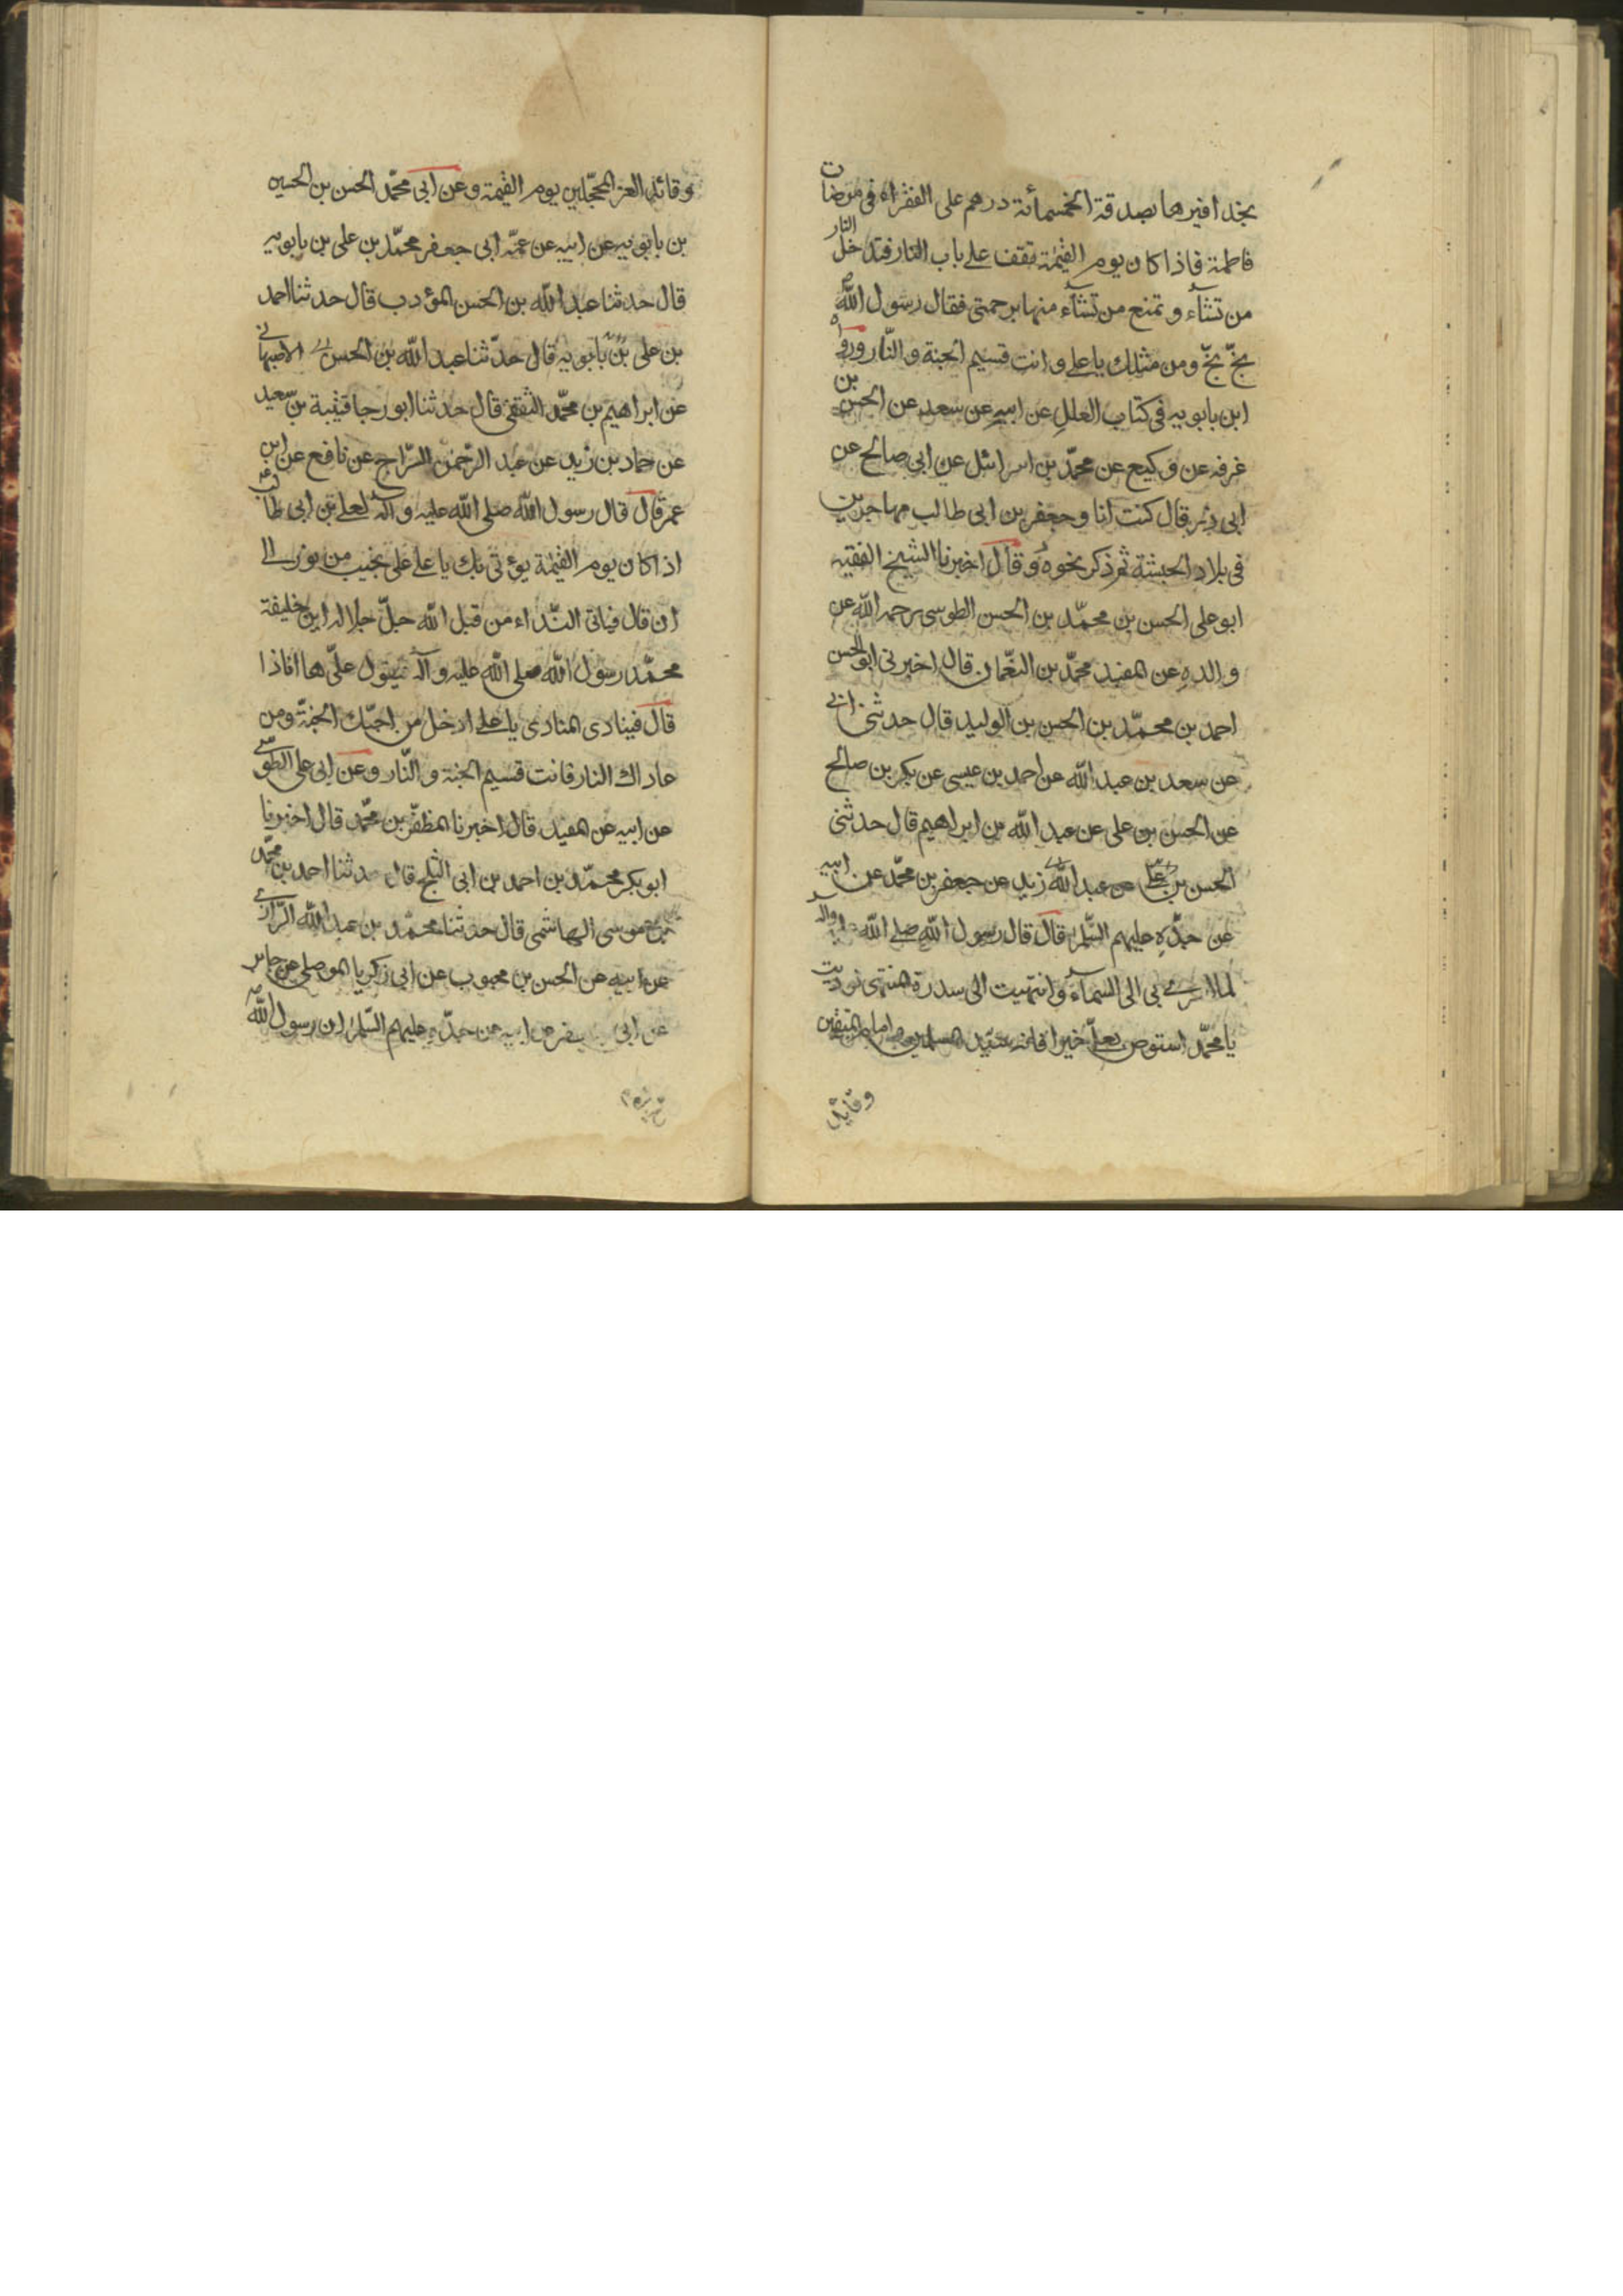 بحذافيرها بصدقة الخمسمأئة درهم على الفقراء فى مرضات
فاطمة فاذا كان يوم القيمة تقف على باب النار فتدخل النار
من تشآء و تمنع من تشآء منها برحمتى فقال رسول الله ص
بخّ بخّ ومن مثلك ياعلى و انت قسيم الجنة و النّار ورواه
ابن بابويه فى كتاب العلل عن ابيه عن سعد عن الحسن بن
عرفه عن وكيع عن محمّد بن اسرائيل عن ابى صالح عن
ابى ذر قال كنت انا و جعفر بن ابى طالب مهاجرين
فى بلاد الحبشة ثم ذكر نحوه و قال اخبرنا الشيخ الفقيه
ابو على الحسن بن محمّد بن الحسن الطوسى رحمه الله عن
والده عن المفيد محمّد بن النعمان قال اخبرنى ابو الحسن
احمد بن محمّد بن الحسن بن الوليد قال حدثنى ابى
عن سعد بن عبد الله عن احمد بن عيسى عن بكر بن صالح
عن الحسن بن على عن عبد الله بن ابراهيم قال حدثنى
الحسن بن على عن عبد الله زيد عن جعفر بن محمّد عن ابيه
عن جدّه عليهم السّلم قال قال رسول الله صلى الله عليه واله
لما اسرى بى الى السمآء و انتهيت الى سدرة المنتهى نوديت
يا محمّد استوص بعلىّ خيرا فانه سيّد المسلمين و امام المتقين
وقائد
وقائد الغر المحجّلين يوم القيمة وعن ابى محمّد الحسن بن الحسين
بن بابويه عن ابيه عن عمّه ابى جعفر محمّد بن على بن بابويه
قال حدثنا عبد الله بن الحسن المؤدب قال حدثنا احمد
بن على بن بابويه قال حدّثنا عبد الله بن الحسن الاصبهانى
عن ابراهيم بن محمّد الثقفى قال حدثنا ابو رجا قتيبة بن سعيد
عن حماد بن زيد عن عبد الرّحمن السّراج عن نافع عن ابن
عمر قال قال رسول الله صلى الله عليه و آله لعلى بن ابى طالب
اذا كان يوم القيمة يؤتى بك ياعلى على نجيب من نور الى
ان قال فياتى النّداء من قبل الله جلّ جلاله اين خليفة
محمّد رسول الله صلى الله عليه و آله فيقول علىّ ها انا ذا
قال فينادى المنادى ياعلى ادخل من احبّك الجنّة ومن
عاداك النار فانت قسيم الجنة و النّار وعن ابى على الطوسى
عن ابيه عن المفيد قال اخبرنا المظفّر بن محمّد قال اخبرنا
ابو بكر محمّد بن احمد بن ابى الثلج قال حدثنا احمد بن محمّد
بن موسى الهاشمى قال حدثنا محمّد بن عبد الله الرّازى
عن ابيه عن الحسن بن محبوب عن ابى زكريا الموصلى عن جابر
عن ابى جعفر عن ابيه عن جدّه عليهم السّلم ان رسول الله ص